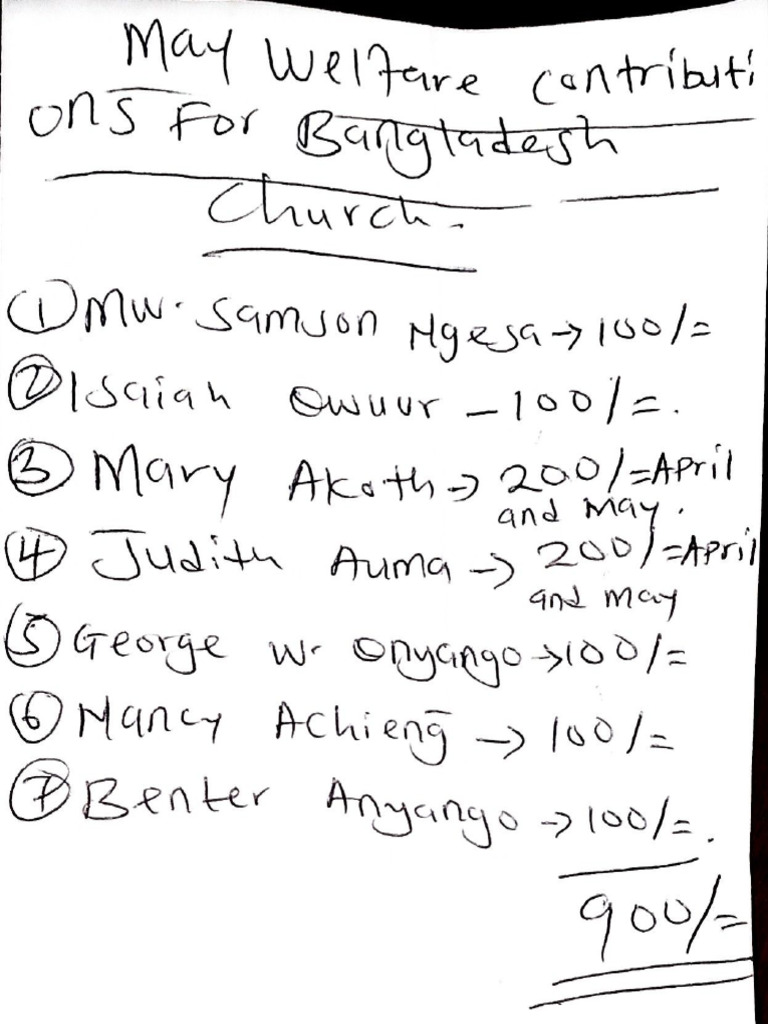 May Welfare contributi
ons For Bangladesh
Church.
① Mw. Samson Ngesa → 100/=
② Isaiah Owuur - 100/=.
③ Mary Akoth → 200/= April
and May.
④ Judith Auma → 200/= April
and may
⑤ George W. Onyango → 100/=
⑥ Nancy Achieng → 100/=
⑦ Benter Anyango → 100/=.
900/=